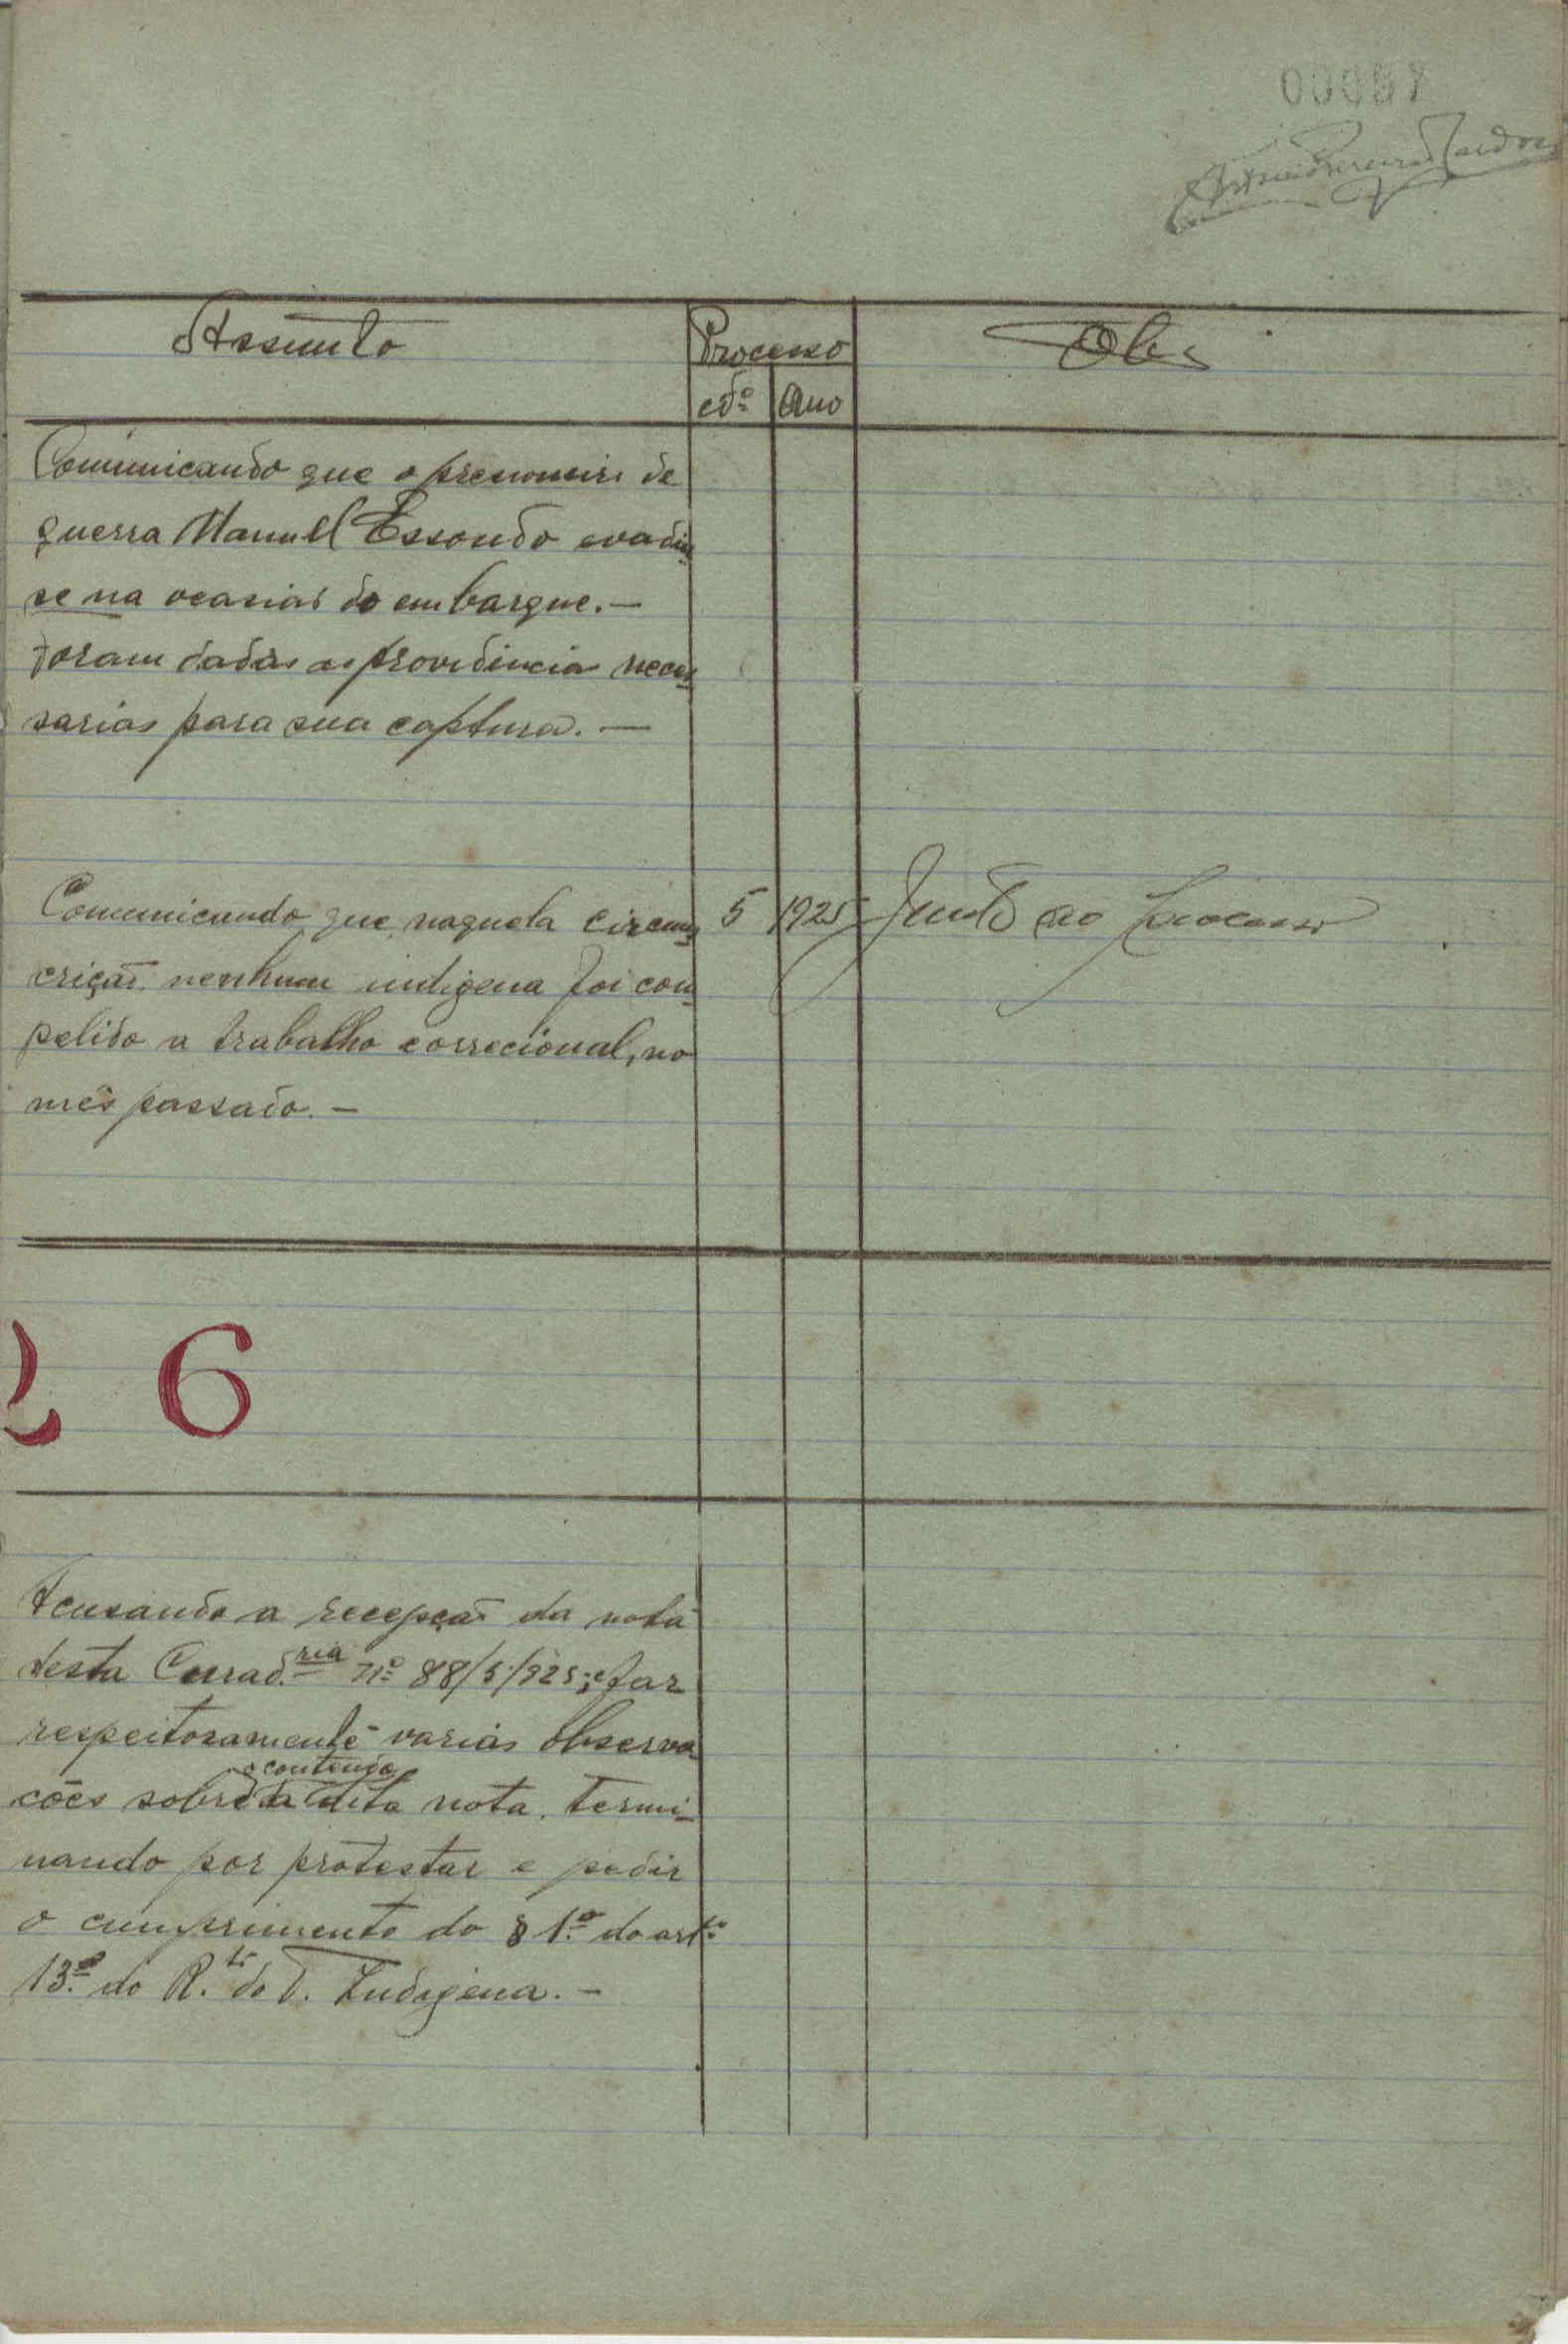 00087
Assunto
Processo
Obs
Nº
Ano
Comunicando que o presioneiro de
guerra Manuel Essondo evadiu
se na ocasião do embarque. —
Foram dadas as providencias neces
sarias para sua captura. —
Comunicando que naquela circuns
5
1925
Junto ao processo
crição nenhum indigena foi com
pelido a trabalho correcional, no
mês passado. —
2 6
Acusando a recepção da nota
desta Curad.ria nº 88/5/925; e faz
respeitosamente varias observa
o contendo
ções sobre a dita nota. Termi-
nando por protestar e pedir
o cumprimento do § 1.º do artº
13.º do R.to do T. Indigena. —